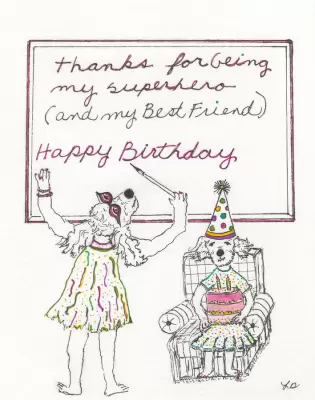 thanks for being
my superhero
(and my Best Friend)
Happy Birthday